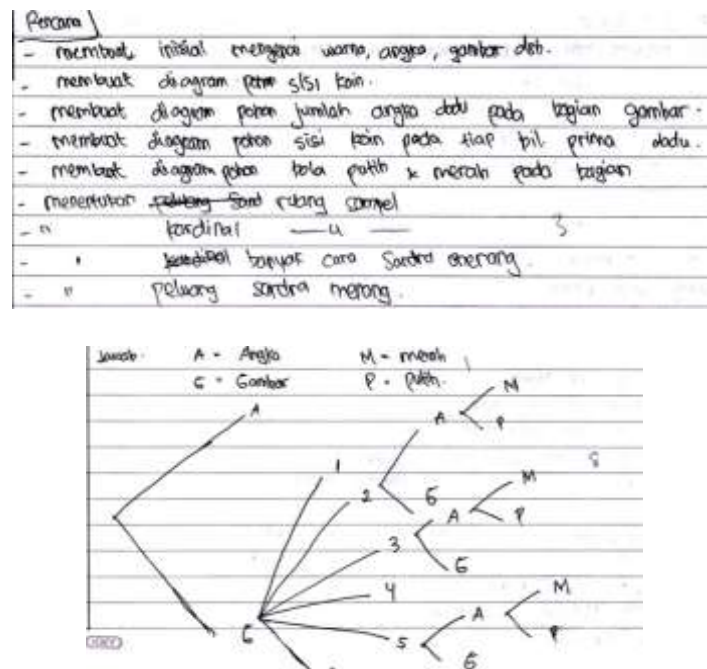 Percana
- membuat inisial mengenai warna, angka, gambar dsb.
- membuat diagram sisi koin.
- membuat diagram pohon jumlah angka dadu pada bagian gambar.
- membuat diagram pohon sisi koin pada tiap bil. prima dadu.
- membuat diagram pohon bola putih & merah pada bagian
- menentukan ruang sampel
- " kardinal — " — 3
- " banyak cara Sandra menang.
- " peluang sandra menang.
Jawab. A = Angka M = merah
G = Gambar P = Putih.
A
M
A
P
1
8
M
2
G
A
P
3
G
4
M
G
5
A
P
G